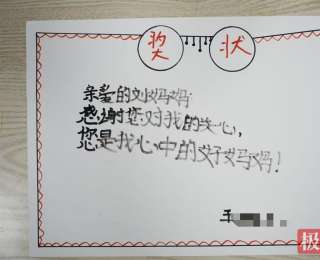 奖状
亲爱的刘妈妈
感谢您对我的关心,
您是我心中的好妈妈!